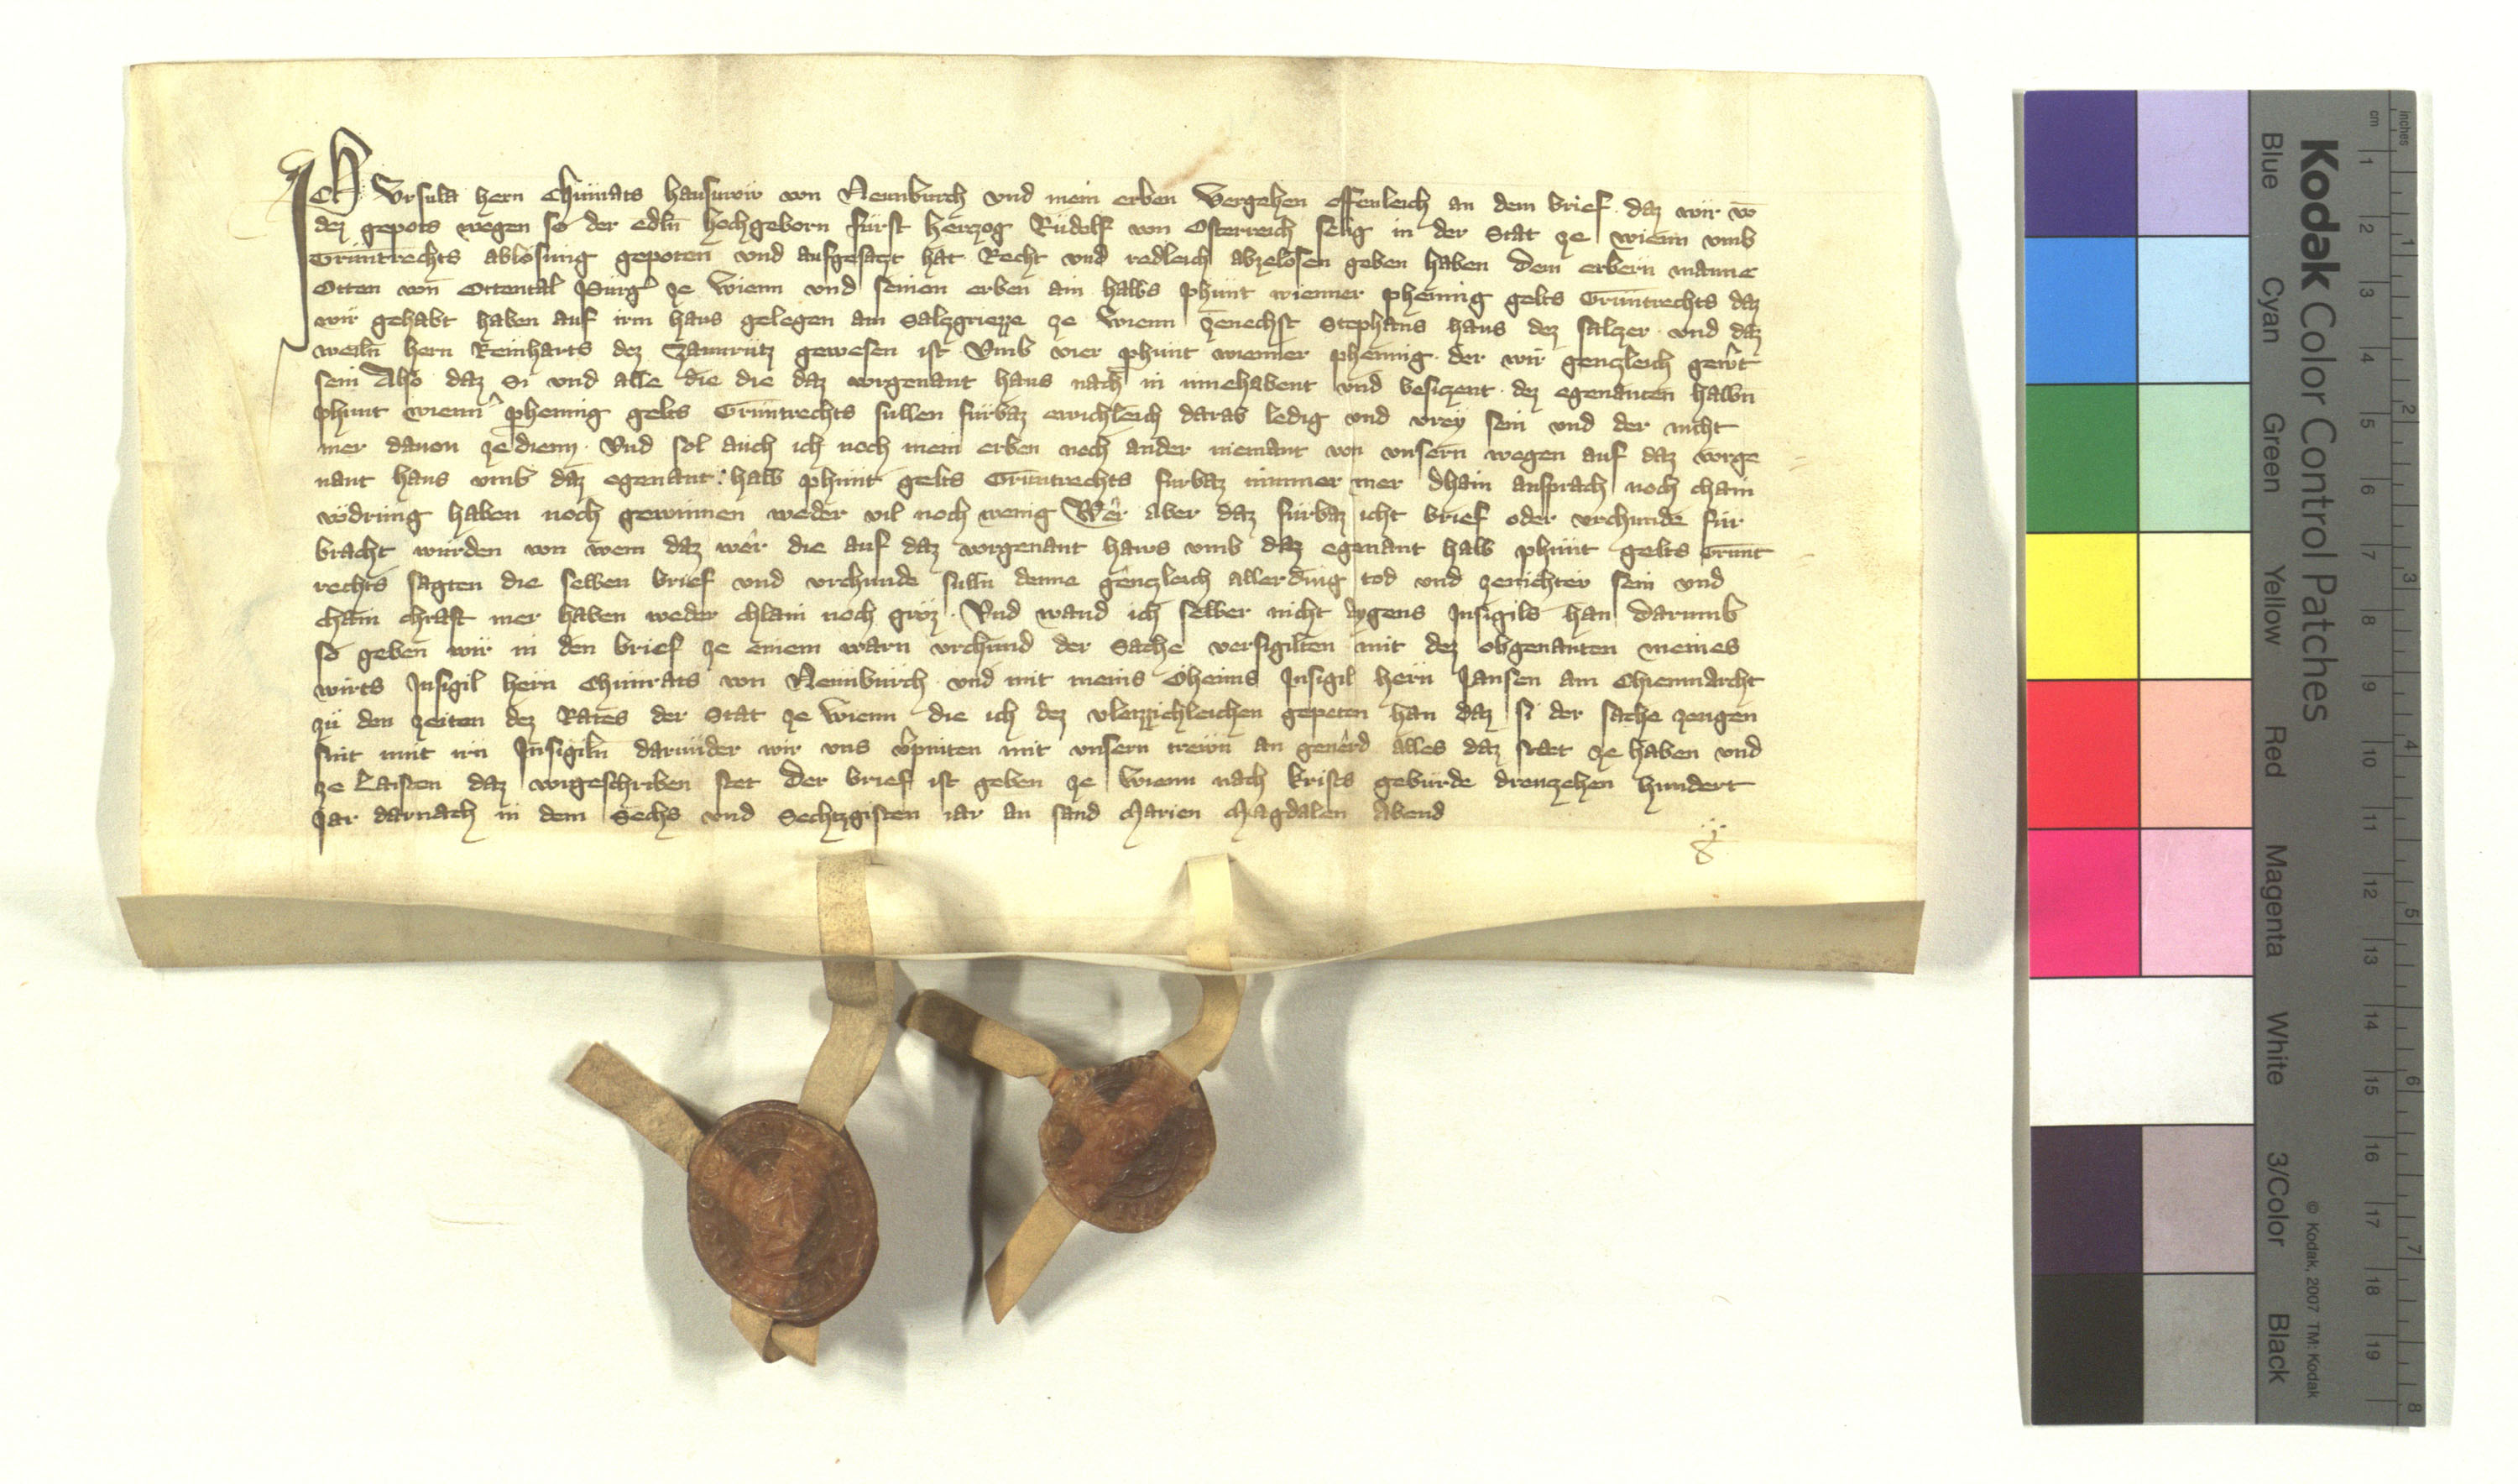 ICh Vrsula hern Chunrats hausurow von Neunburch vnd mein erben Vergehen offenleich an dem brief daz wir vō
dez gepots wegen so der edln hochgeborn fürst herczog Rudolf von Osterreich selig in der Stat ze wienn vmb
Gruntrechts ablosung gepoten vnd aufgesaczt hat Recht vnd redleich abzelosen geben haben dem erbern manne
Otten von Ottental Purg̉ ze Wienn vnd seinen erben ain halbs phunt wienner phennig gelts Gruntrechts daz
wir gehabt haben auf irm haus gelegen am Salczgriezze ze Wienn zenechst Stephans haus dez salczer vnd daz
weiln hern Reinharts dez gewesen ist Vmb vier phunt wienner phennig der wir genczleich gewert
sein Also daz Si vnd alle die die daz vorgenant haus nach in innehabent vnd besiczent dez egenanten halbn
phunt wienn̉ phennig gelts Gruntrechts sullen fürbaz ewichleich darab ledig vnd vrey sein vnd der nicht
mer dauon ze dienn Vnd sol auch ich noch mein erben noch ander niemant von vnsern wegen auf daz vorge
nant haus vmb daz egenant halb phunt gelts Gruntrechts furbaz nimmer mer dhain ansprach noch chain
vodrung haben noch gewinnen weder vil noch wenig Wer aber daz fürbaz icht brief oder vrchunde für
bracht wurden von wem daz wer die auf daz vorgenant haws vmb daz egenant halb phunt gelts Grunt
rechts sagten die selben brief vnd vrchunde sulln denne genczleich allerding tod vnd zenichtew sein vnd
chain chraft mer haben weder chlain noch groz Vnd wand ich selber nicht aygens Insigils han darumb
so geben wir in den brief ze einem warn vrchund der Sache versigilten mit dez obgenanten meines
wirts Insigil hern Chunrats von Neunburch vnd mit meins Oheims Insigil hern Jansen am Chienmarcht
zu den zeiten dez Rates der Stat ze Wienn die ich dez vleizzichleichen gepeten han daz si der sache zeugen
sint mit irn Insigiln darunder wir vns v̉pinten mit vnsern trewn an geuerd alles daz stet ze haben vnd
ze Laisten daz vorgeschriben stet Der brief ist geben ze Wienn nach Krists geburde dreuzehen hundert
Jar darnach in dem Sechs vnd Sechtzgisten iar an sand Marien Magdalen Abend
Kodak Color Control Patches
Blue Cyan Green Yellow Red Magenta White 3/Color Black
© Kodak, 2007 TM: Kodak
cm 1 2 3 4 5 6 7 8 9 10 11 12 13 14 15 16 17 18 19
inches 1 2 3 4 5 6 7 8